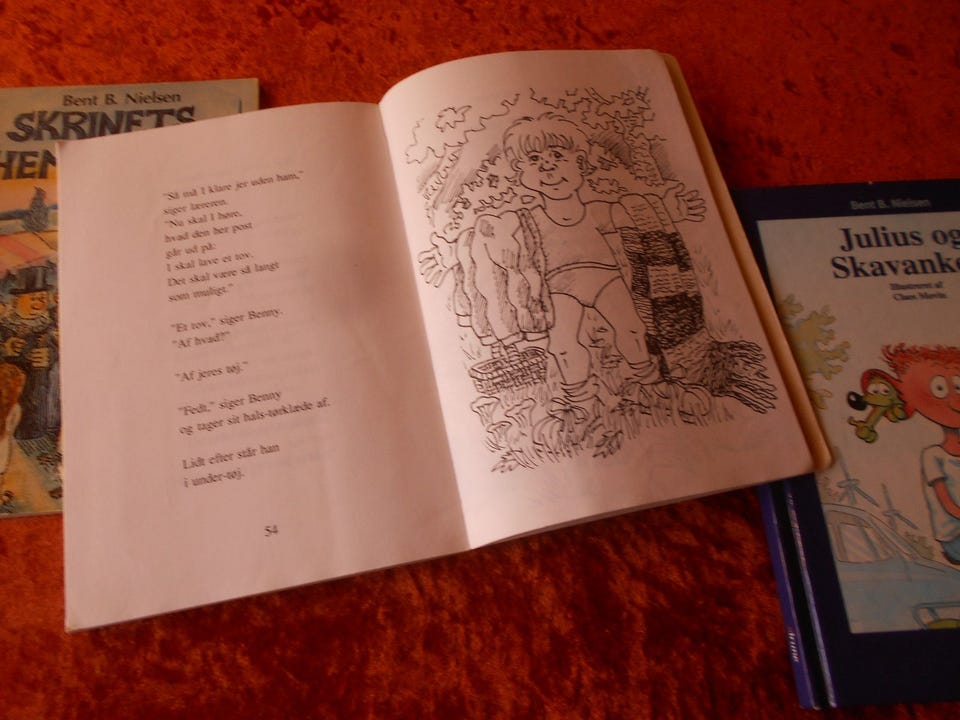 Bent B. Nielsen
SKRINETS
HEM
"Så må I klare jer uden ham,"
siger læreren.
"Nu skal I høre,
hvad den her post
går ud på:
I skal lave et tov.
Det skal være så langt
som muligt."
"Et tov," siger Benny.
"Af hvad?"
"Af jeres tøj."
"Fedt," siger Benny
og tager sit hals-tørklæde af.
Lidt efter står han
i under-tøj.
54
Bent B. Nielsen
Julius og
Skavank
Illustreret af
Claes Movin